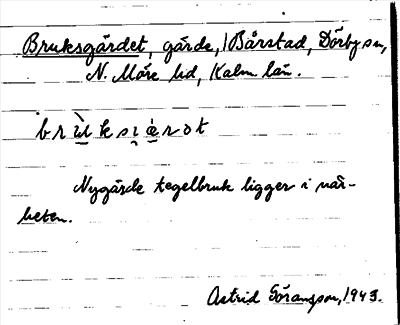 Bruksgärdet, gärde, Bårstad, Dörby sn,
N. Möre hd, Kalm. län.
brùksıærət
Nygärde tegelbruk ligger i när-
heten.
Astrid Göransson, 1943.